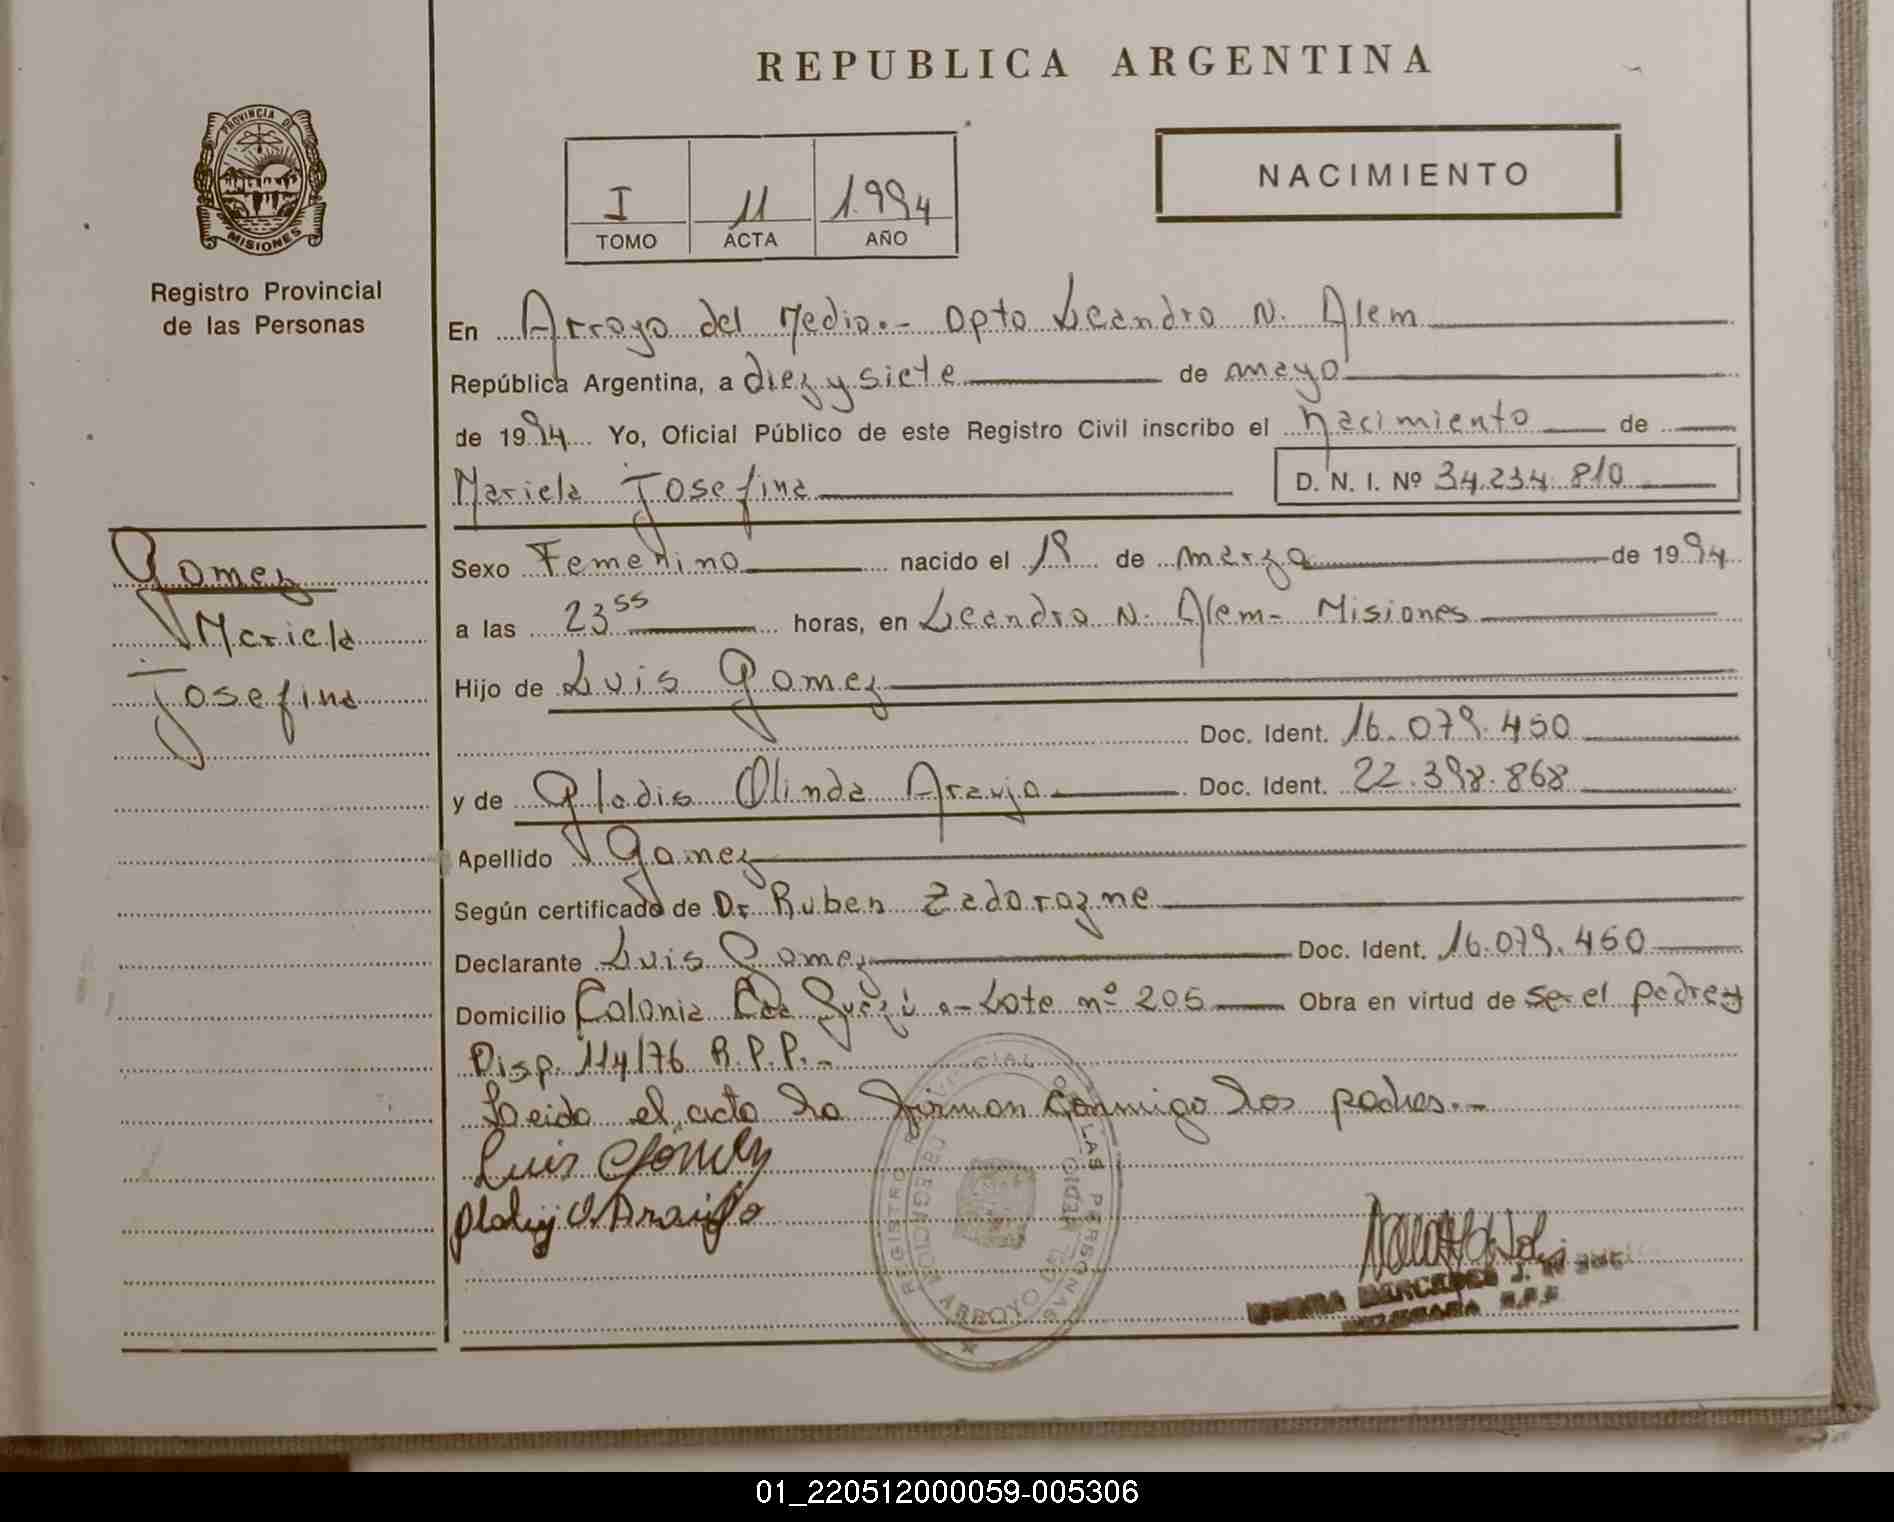 REPUBLICA ARGENTINA
PROVINCIA DE
MISIONES
Registro Provincial
de las Personas
I 11 1.994
TOMO ACTA AÑO
NACIMIENTO
En Arroyo del Medio.- Dpto Leandro N. Alem
República Argentina, a diez y siete de mayo
de 1994 Yo, Oficial Público de este Registro Civil inscribo el nacimiento de
Mariela Josefina D. N. I. Nº 34.234.810
Gomez
Mariela
Josefina
Sexo Femenino nacido el 19 de marzo de 1994
a las 23⁵⁵ horas, en Leandro N. Alem- Misiones
Hijo de Luis Gomez
Doc. Ident. 16.079.450
y de Gladis Olinda Araujo Doc. Ident. 22.398.868
Apellido Gomez
Según certificado de Dr Ruben Zadorozne
Declarante Luis Gomez Doc. Ident. 16.079.450
Domicilio Colonia Caa Guazú .- Lote nº 205 Obra en virtud de ser el padre y
Disp. 114/76 R.P.P.-
Leida el acta la firman conmigo los padres.-
Luis Gómez
O. Araujo
REGISTRO PROVINCIAL DE LAS PERSONAS
DELEGACION ARROYO DEL MEDIO
MERCEDES J.
DELEGADA R.P.P.
01_220512000059-005306